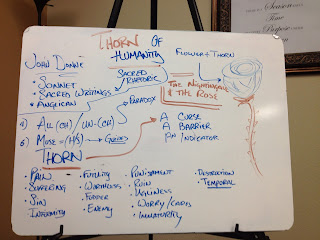 THORN OF
HUMANITY
JOHN DONNE
SACRED
RHETORIC
FLOWER + THORN
• SONNET
• SACRED WRITINGS
• ANGLICAN
THE NIGHTINGALE
& THE ROSE
PARADOX
ALL (CH) / UN-(CH)
MUSE = (H/S) → GUIDES
A CURSE
A BARRIER
AN INDICATOR
THORN
• PAIN
SUFFERING
• SIN
INFIRMITY
• FUTILITY
• WORTHLESS
• FODDER
• ENEMY
• PUNISHMENT
• RUIN
• UGLINESS
• WORRY/CARES
• IMMATURITY
• DESTRUCTION
• TEMPORAL
Season
Time
Purpose